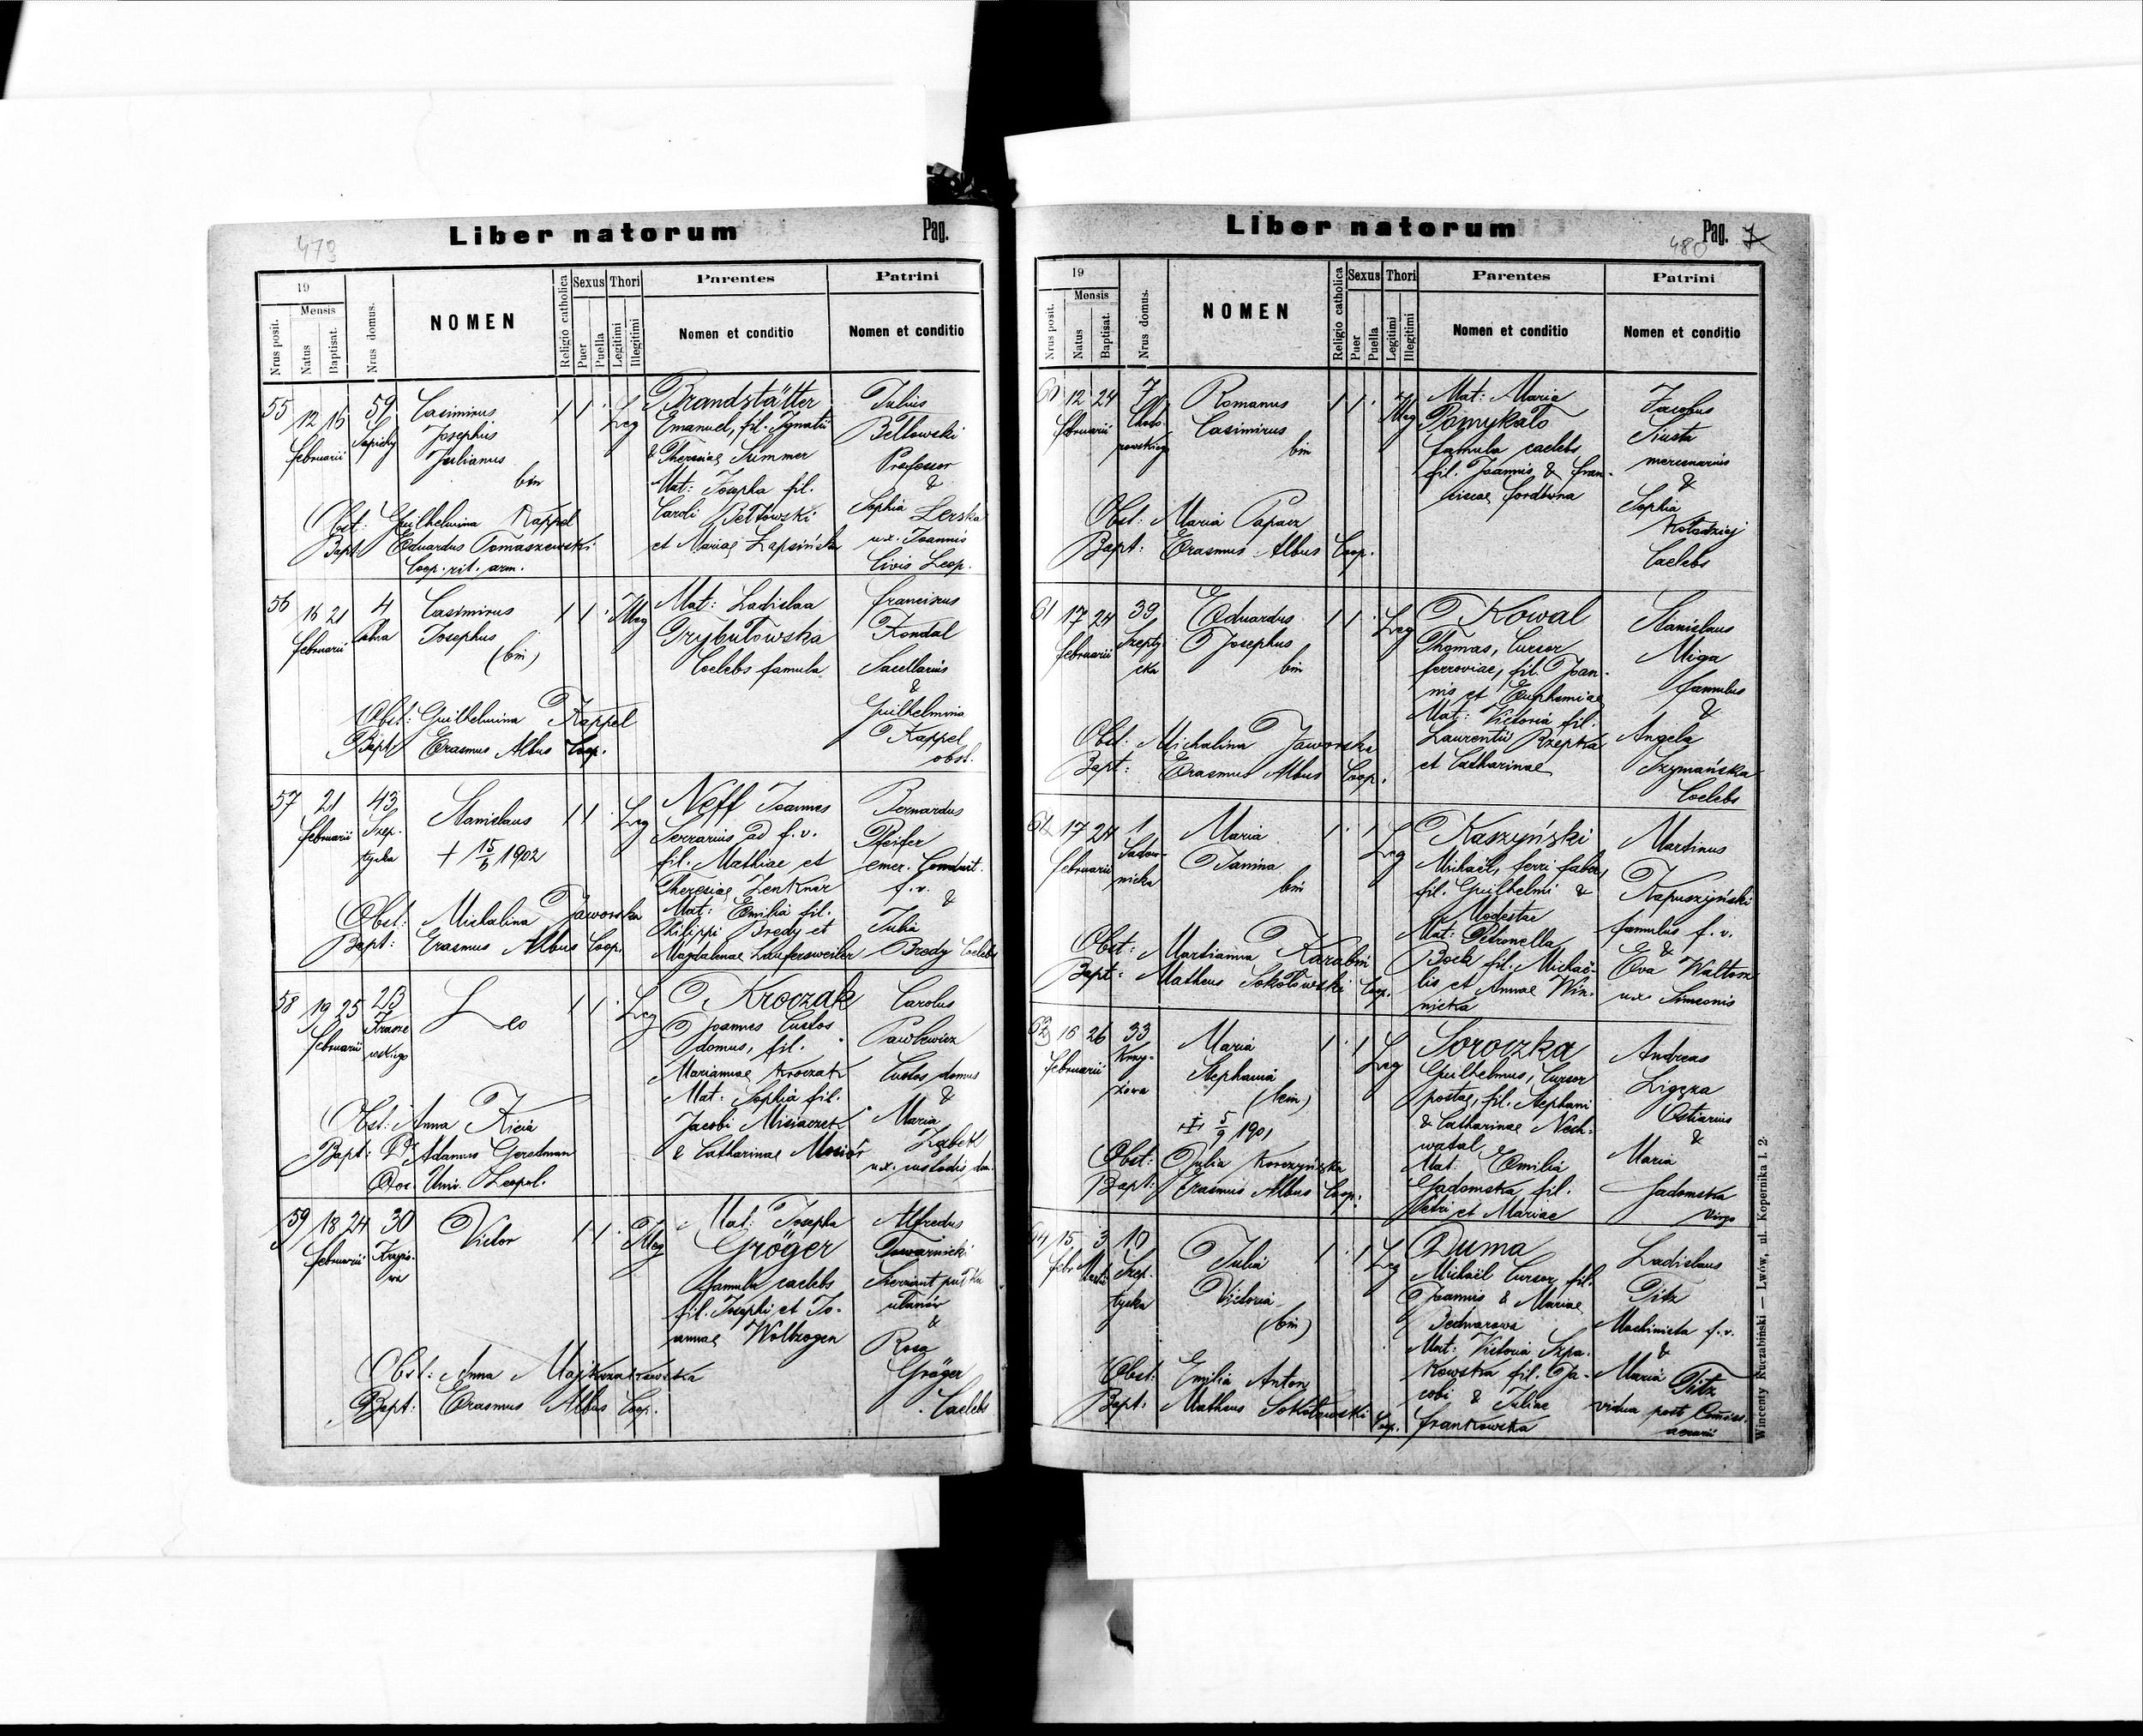 479
Liber natorum
Pag.
19
Mensis
Nrus posit.
Natus
Baptisat.
Nrus domus.
NOMEN
Religio catholica
Sexus
Puer
Puella
Thori
Legitimi
Illegitimi
Parentes
Nomen et conditio
Patrini
Nomen et conditio
55
12 15
Februarii
59
Sapiehy
Casimirus
Josephus
Julianus
bin
1 1 Leg
Brandstätter
Emanuel, fil. Ignatii
& Theresiae Summer
Mat: Josepha fil.
Caroli Bełtowski
et Mariae Łapsińska
Julius
Bełtowski
Professor
&
Sophia Lerska
ux. Joannis
Civis Leop.
Obst: Guilhelmina Kappel
Bapt: Eduardus Tomaszewski
Coop. rit. arm.
56
16 21
Februarii
4
Casimirus
Josephus
(bin)
1 1 Illeg
Mat: Ladislaa
Trybułowska
Coelebs famula
Franciscus
Kondal
Sacellarius
&
Guilhelmina
Kappel
obst.
Obst: Guilhelmina Kappel
Bapt: Erasmus Albus Coop.
57
21
Februarii
43
Szep-
tycka
Stanislaus
+ 15/6 1902
1 1 Leg
Neff Joannes
Serrarius ad f. v.
fil. Mathiae et
Theresiae Zenkner
Mat: Emilia fil.
Philippi Bredy et
Magdalenae Laufersweiler
Bernardus
Pfeifer
emer. Conduct.
f. v.
&
Julia
Bredy Coelebs
Obst: Michalina Jaworska
Bapt: Erasmus Albus Coop.
58
19 25
Februarii
23
Leo
1 1 Leg
Kroczak
Joannes Custos
domus, fil.
Mariannae Kroczak
Mat: Sophia fil.
Jacobi Misiaczek
& Catharinae Mosiór
Carolus
Pawlewicz
Custos domus
&
Maria
Ząbek
ux. custodis dom.
Obst: Anna Kicia
Bapt: Dr Adamus Gerstman
Doc. Univ. Leopol.
59
18 24
Februarii
30
Victor
1 1 Illeg
Mat: Josepha
Gröger
famula caelebs
fil. Josephi et Jo-
annae Wolzogen
Alfredus
Towarnicki
ułanów
&
Rosa
Gröger
Caelebs
Obst: Anna
Bapt: Erasmus Albus Coop.
480
Liber natorum
Pag. 7
19
Mensis
Nrus posit.
Natus
Baptisat.
Nrus domus.
NOMEN
Religio catholica
Sexus
Puer
Puella
Thori
Legitimi
Illegitimi
Parentes
Nomen et conditio
Patrini
Nomen et conditio
60
12 24
Februarii
7
Romanus
Casimirus
bin
1 1 Illeg
Mat: Maria
Pomykało
famula caelebs
fil. Joannis & Fran-
ciscae
Jacobus
Siusta
mercenarius
&
Sophia
Kołodziej
Caelebs
Obst: Maria Papacz
Bapt: Erasmus Albus Coop.
61
17 24
Februarii
39
Szepty
cka
Eduardus
Josephus
bin
1 1 Leg
Kowal
Thomas, Cursor
ferroviae, fil. Joan-
nis et Euphemiae
Mat: Victoria fil.
Laurentii Rzepka
et Catharinae
Stanislaus
Miga
famulus
&
Angela
Szymańska
Coelebs
Obst: Michalina Jaworska
Bapt: Erasmus Albus Coop.
62
17 24
Februarii
1
Sadow-
nicka
Maria
Janina
bin
1 1 Leg
Kaszyński
Michaël, ferri faber,
fil. Guilhelmi &
Modestae
Mat: Petronella
Bock fil. Michaë-
lis et Annae Win-
nicka
Martinus
Kapuszyński
famulus f. v.
&
Eva Waltosz
ux. Simeonis
Obst: Marianna Karabin
Bapt: Matheus Sokołowski Coop.
63
16 26
Februarii
33
Krzy-
żowa
Maria
Stephania
(bin)
5/9 1901
1 1 Leg
Soroczka
Guilhelmus, Cursor
postae, fil. Stephani
& Catharinae Nech-
watal
Mat: Emilia
Gadomska fil.
Petri et Mariae
Andreas
Ligęza
Ostiarius
&
Maria
Gadomska
virgo
Obst: Julia Korczyńska
Bapt: Erasmus Albus Coop.
64
15 3
Febr. Martii
10
Szep-
tycka
Julia
Victoria
(bin)
1 1 Leg
Duma
Michaël Cursor, fil.
Joannis & Mariae
Bednarowa
Mat: Victoria Szpa-
kowska fil. Ja-
cobi & Juliae
Frankowska
Ladislaus
Titz
Machinista f. v.
&
Maria Titz
vidua post
Obst: Emilia Anton
Bapt: Matheus Sokołowski Coop.
Wincenty Kuczabiński — Lwów, ul. Kopernika l. 2.